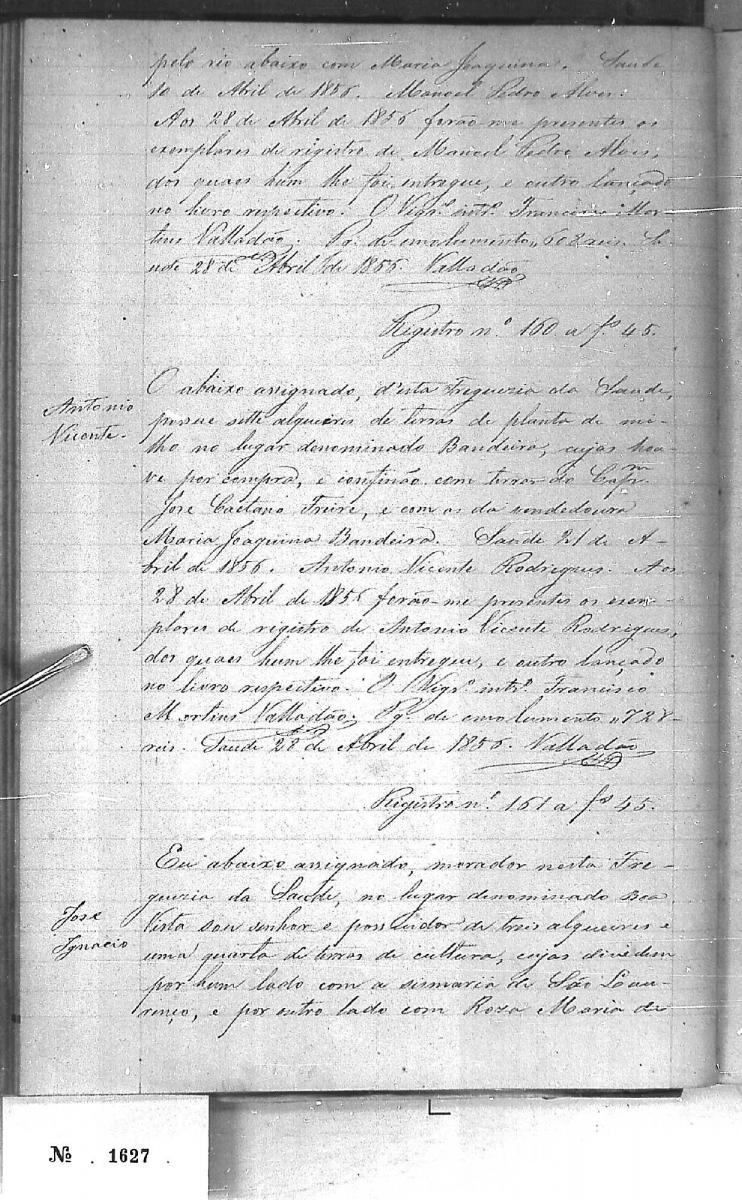 pelo rio abaixo com Maria Joaquina. Saude
10 de Abil de 1856. Manoel Pedro Alves.
Aos 28 de Abril de 1856 forão-me presentes os
exemplares de registro de Manoel Pedro Alves,
dos quaes hum lhe foi entregue, e outro lançado
no livro respectivo. O Vigr.º intr.º Francisco Mar-
tins Valladão. Pg. de emolumento, 608 reis. Sa-
ude 28 de Abril de 1856. Valladão
Registro n.º 160 a f.º 45.
Antonio
Vicente.
O abaixo assignado, d'esta Freguezia da Saude,
possue sette alqueires de terras de planta de mi-
lho no lugar denominado Bandeira, cujas hou-
ve por compra, e confinão com terras do Cap.m
José Caetano Freire, e com as da vendedoura
Maria Joaquina Bandeira. Saude 21 de A-
bril de 1856. Antonio Vicente Rodrigues. Aos
28 de Abril de 1856 forão-me presentes os exem-
plares de registro de Antonio Vicente Rodrigues,
dos quaes hum lhe foi entregue, e outro lançado
no livro respectivo. O Vigr.º intr.º Francisco
Martins Valladão. Pg. de emolumento, 728
reis. Saude 28 de Abril de 1856. Valladão
Registro n.º 161 a f.º 45.
José
Ignacio
Eu abaixo assignado, morador nesta Fre-
guezia da Saude, no lugar denominado Boa
Vista sou senhor e possuidor de tres alqueires e
uma quarta de terras de cultura, cujas dividem
por hum lado com a sismaria de São Lou-
renço, e por outro lado com Roza Maria de
№ . 1627 .